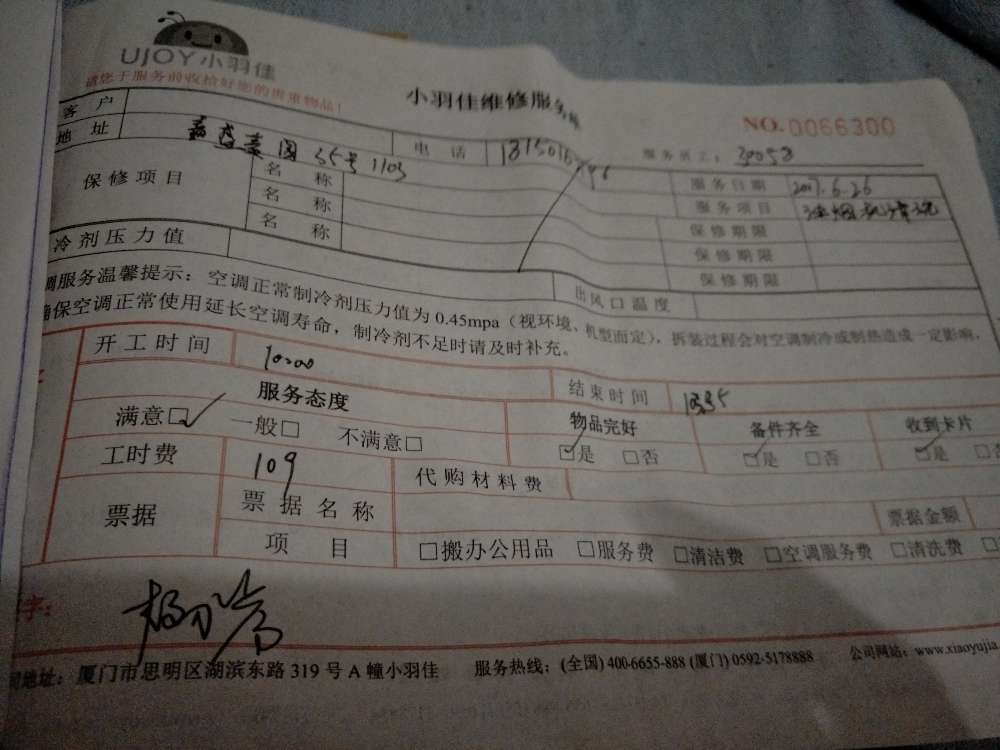 UJOY小羽佳
请您于服务前收拾好您的贵重物品!
小羽佳维修服务
NO.0066300
客户
地址 35号1103 电话
服务员工: 30058
保修项目 名称 服务日期 2017.6.26
名称 服务项目 油烟机清洗
名称 保修期限
保修期限
保修期限
冷剂压力值 出风口温度
调服务温馨提示:空调正常制冷剂压力值为0.45mpa(视环境、机型而定),拆装过程会对空调制冷或制热造成一定影响,
确保空调正常使用延长空调寿命,制冷剂不足时请及时补充。
开工时间 10:00 结束时间
服务态度 物品完好 备件齐全 收到卡片
满意□ 一般□ 不满意□ □是 □否 □是 □否 □是 □否
工时费 109 代购材料费
票据 票据名称 票据金额
项目 □搬办公用品 □服务费 □清洁费 □空调服务费 □清洗费 □
字:
地址:厦门市思明区湖滨东路319号A幢小羽佳 服务热线:(全国)400-6655-888 (厦门)0592-5178888 公司网站:www.xiaoyujia